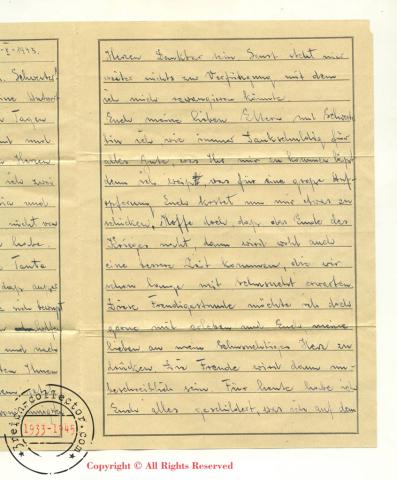 -I-1945.
Schwester!
Tagen
und
Herzen
ich zwei
und
nicht
habe.
Tanta
dass
und nach
Ihnen
Herzen dankbar sein. Sonst steht mir
weiter nichts zur Verfügung mit dem
ich mich revangieren könnte.
Euch meine lieben Eltern mit Schwester
bin ich wie immer Dankschuldig für
alles Gute, was Ihr mir zu kommen lässt
denn ich weiß was für eine große Auf-
opferung Euch kostet um mir etwas zu
schicken. Hoffe doch, daß das Ende des
Krieges naht, dann wird wohl auch
eine bessere Zeit kommen, die wir
schon lange mit Sehnsucht erwarten.
Diese Freudigestunde möchte ich doch
gerne mit erleben und Euch meine
lieben an mein Sehnsuchtiges Herz zu
drücken. Die Freude wird dann un-
beschreiblich sein. Für heute habe ich
Euch alles geschildert, was ich auf dem
reich-collector.com
1933-1945
Copyright © All Rights Reserved